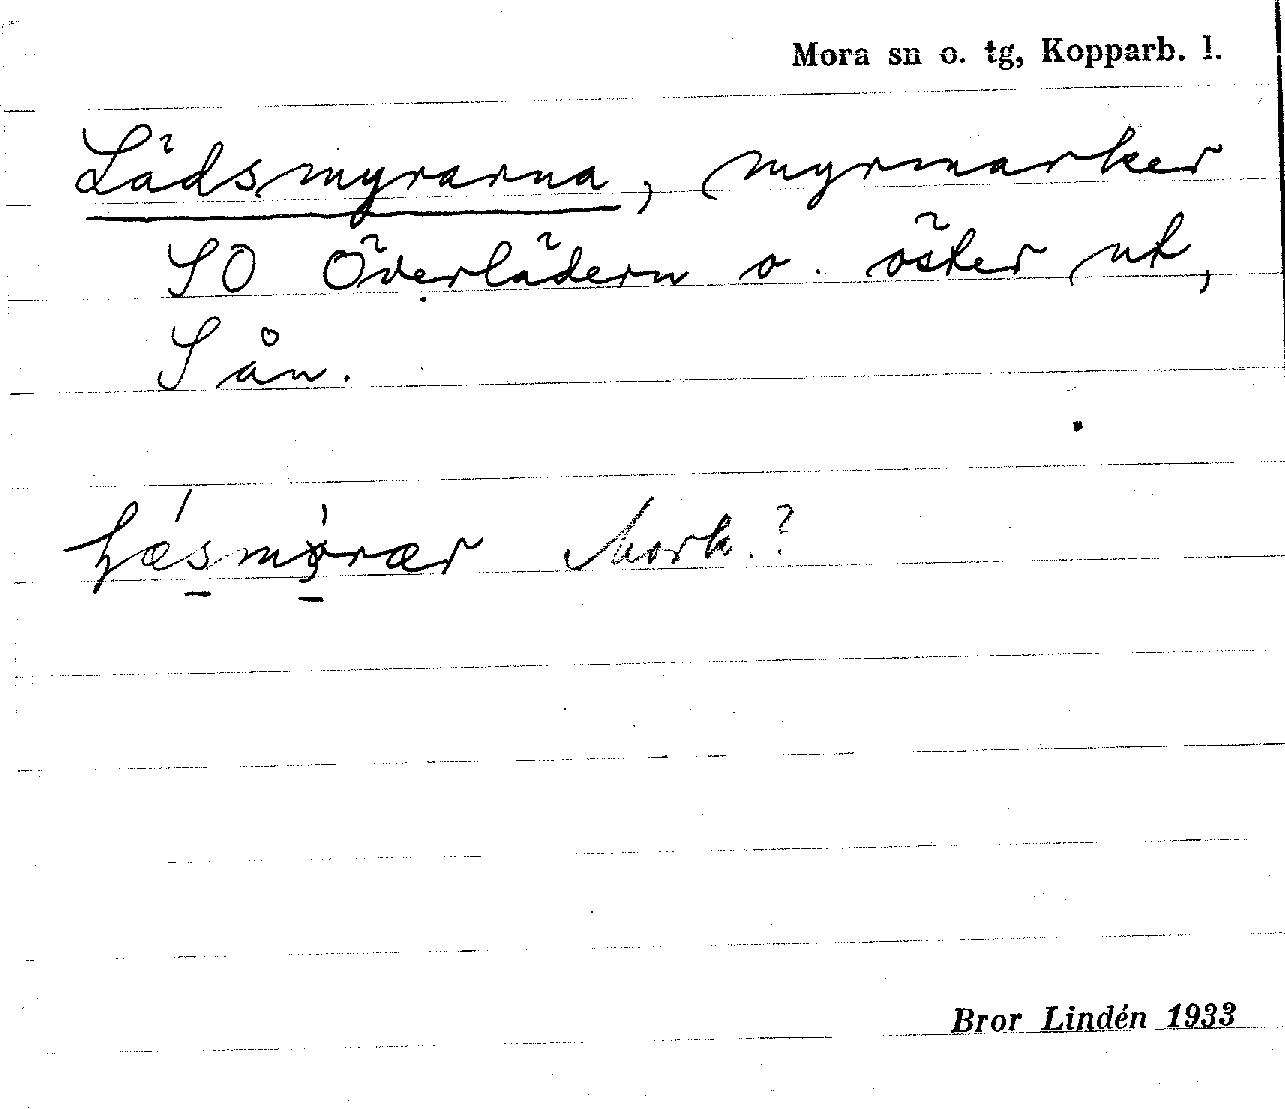 Mora sn o. tg, Kopparb. l.
Lädsmyrarna, myrmarker
SO Överlädern o. öster ut,
S ån.
Mork.?
Bror Lindén 1933